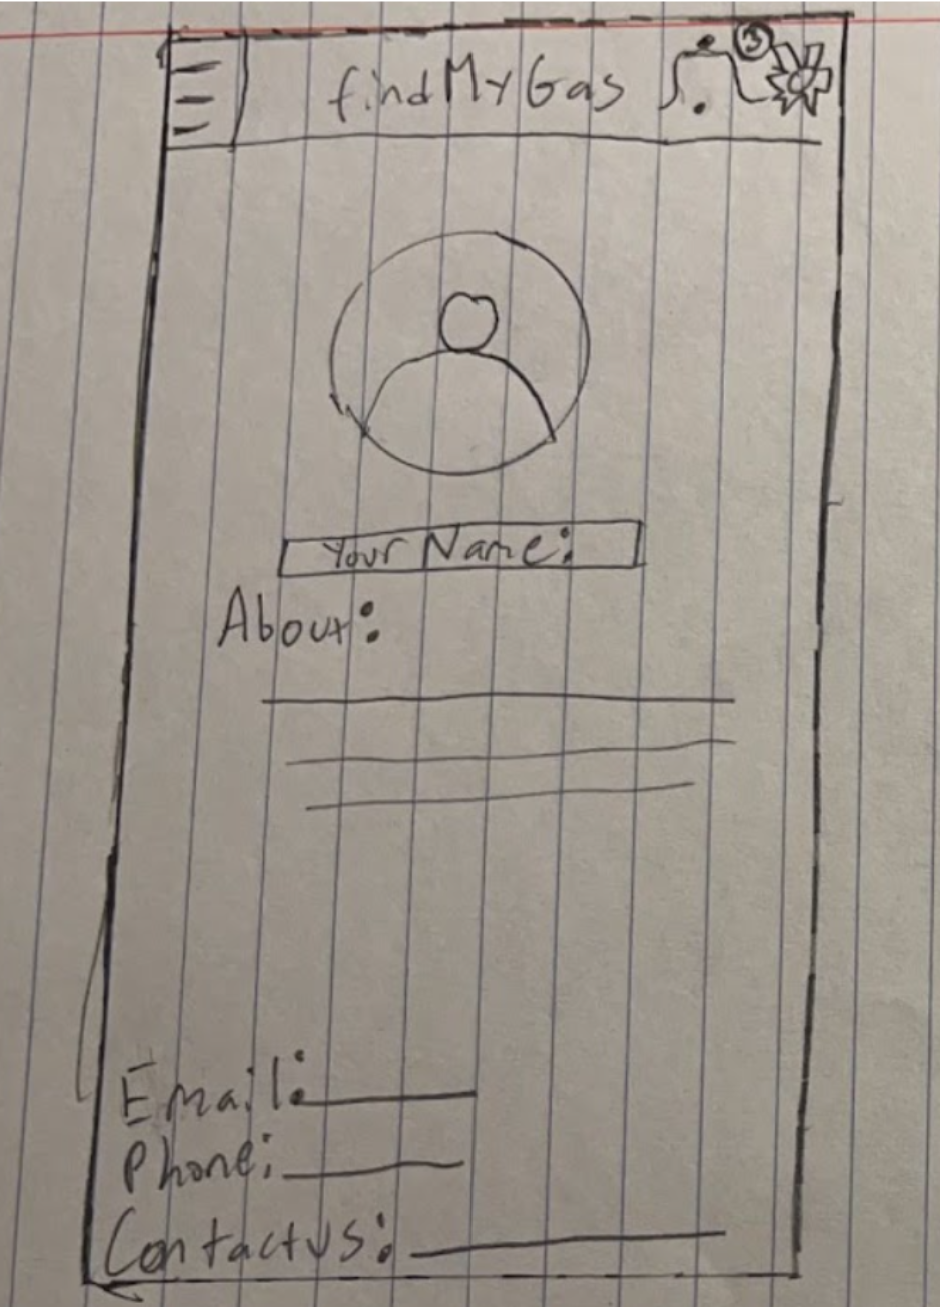 findMyGas
3
Your Name:
About:
Email:
Phone:
Contact us: